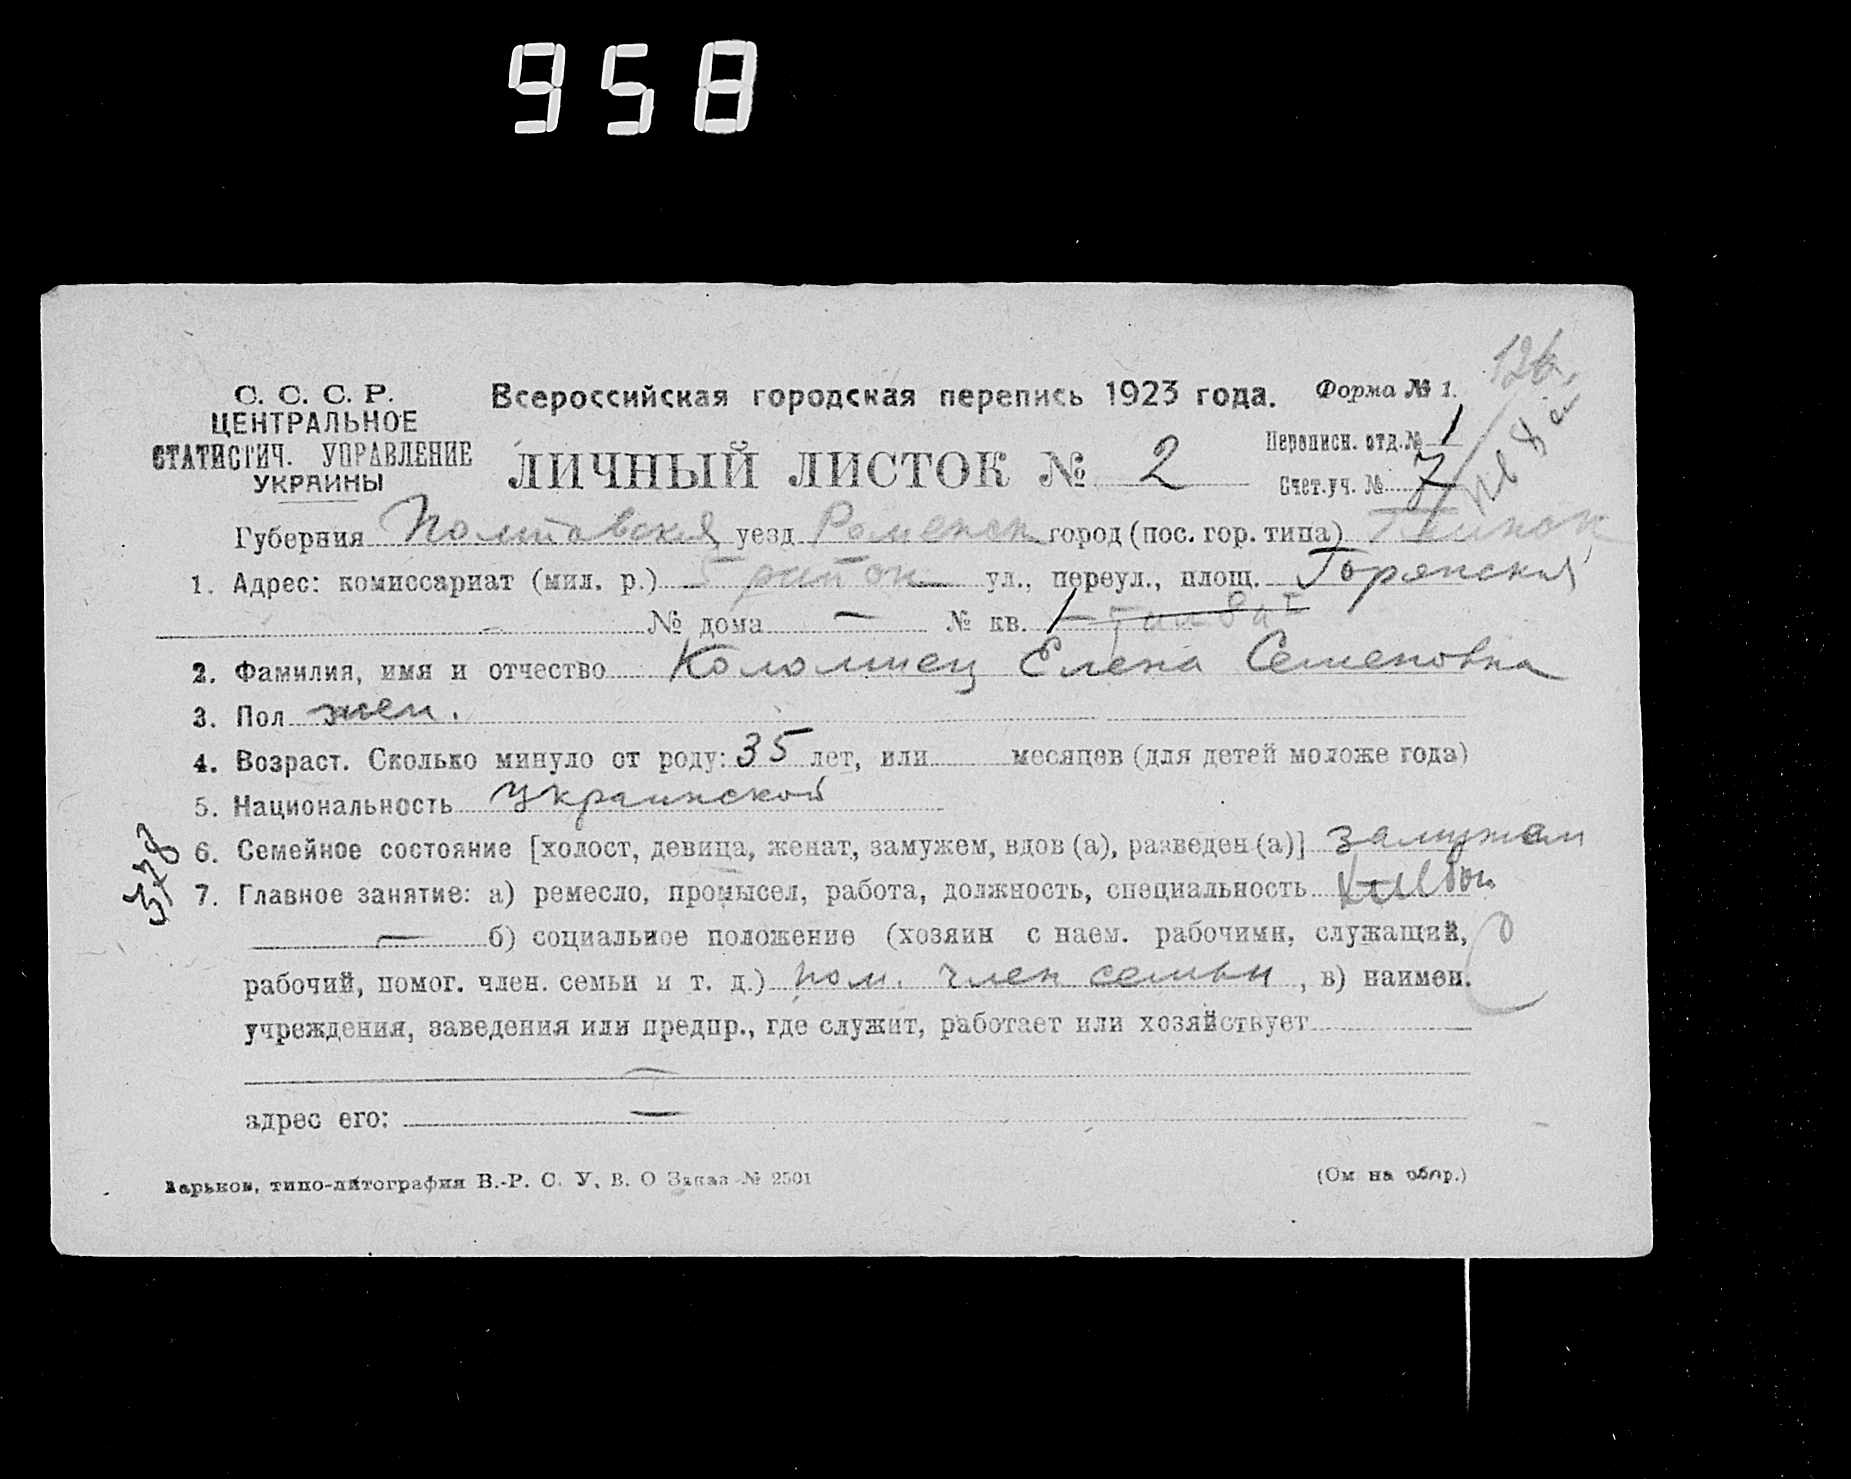 958
С. С. С. Р.
ЦЕНТРАЛЬНОЕ
СТАТИСТИЧ. УПРАВЛЕНИЕ
УКРАИНЫ
Всероссийская городская перепись 1923 года.
Форма № 1.
126.
ЛИЧНЫЙ ЛИСТОК № 2
Переписн. отд. № 1
Счет. уч. № 7
Губерния Полтавская уезд Роменск город (пос. гор. типа)
1. Адрес: комиссариат (мил. р.) 5 район ул., переул., площ.
— № дома — № кв. 1
2. Фамилия, имя и отчество Коломиец Елена Семеновна
3. Пол жен.
4. Возраст. Сколько минуло от роду: 35 лет, или месяцев (для детей моложе года)
5. Национальность Украинской
6. Семейное состояние [холост, девица, женат, замужем, вдов (а), разведен (а)] замужем
7. Главное занятие: а) ремесло, промысел, работа, должность, специальность
— б) социальное положение (хозяин с наем. рабочими, служащий,
рабочий, помог. член. семьи и т. д.) пом. член семьи, в) наимен.
учреждения, заведения или предпр., где служит, работает или хозяйствует
—
адрес его: —
Харьков, типо-литография В.-Р. С. У. В. О Заказ № 2501
(См на обор.)